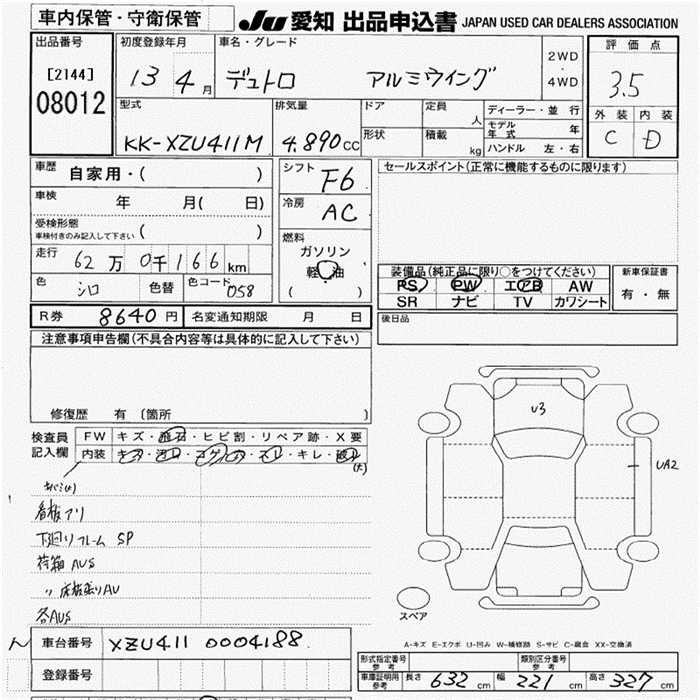 車内保管・守衛保管
JU 愛知 出品申込書 JAPAN USED CAR DEALERS ASSOCIATION
出品番号 初度登録年月 車名・グレード 2WD・4WD 評価点
[2144] 13 4月 デュトロ アルミウイング 3.5
08012
型式 排気量 ドア 定員 人 ディーラー・並行 外装 内装
KK-XZU411M 4.890cc 形状 積載 kg モデル年式 年 C D
ハンドル 左・右
車歴 自家用・( ) シフト F6 セールスポイント(正常に機能するものに限ります)
車検 年 月( 日) 冷房 AC
受検形態 車検付きのみ記入して下さい ( ) 燃料
走行 62万0千166km ガソリン
軽油
( )
色 シロ 色替 色コード 058
装備品(純正品に限り○をつけてください) 新車保証書
PS PW エアB AW 有・無
SR ナビ TV カワシート
R券 8640円 名変通知期限 月 日 後日品
注意事項申告欄(不具合内容等は具体的に記入して下さい)
修復歴 有 〔箇所 〕
U3
UA2
検査員記入欄 FW キズ・飛石・ヒビ割・リペア跡・X要
内装 キズ・汚れ・コゲ・穴・スレ・キレ・破れ
看板アリ
下廻りフレーム SP
荷箱 AUS
〃 床板張りAU
各AUS
スペア
A-キズ E-エクボ U-凹み W-補修跡 S-サビ C-腐食 XX-交換済
車台番号 XZU411 0004188
登録番号
形式指定番号 参考 類別区分番号 参考
車庫証明用 参考 長さ 632cm 幅 221cm 高さ 327cm